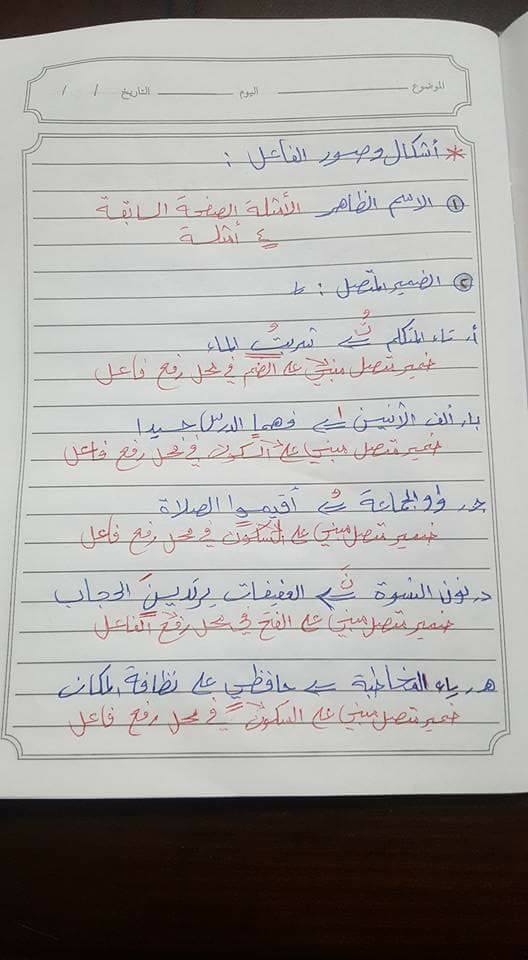 الموضوع اليوم التاريخ / /
* أشكال وصور الفاعل :
١ الاسم الظاهر الأمثلة الصفحة السابقة
٤ أمثلة
٢ الضمير المتصل :
أ. تاء المتكلم تُ شربتُ الماء
ضمير متصل مبني على الضم في محل رفع فاعل
ب. ألف الاثنين ا فهما الدرس جيدا
ضمير متصل مبني على السكون في محل رفع فاعل
جـ. واو الجماعة و أقيموا الصلاة
ضمير متصل مبني على السكون في محل رفع فاعل
د. نون النسوة نَ العفيفات يرتدينَ الحجاب
ضمير متصل مبني على الفتح في محل رفع الفاعل
هـ. ياء المخاطبة ي حافظي على نظافة المكان
ضمير متصل مبني على السكون في محل رفع فاعل